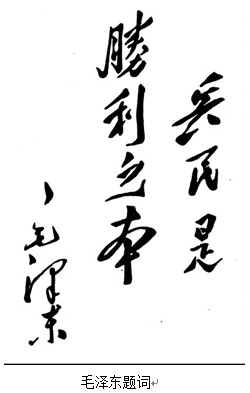 兵民是
勝利之本
毛澤东
毛泽东题词